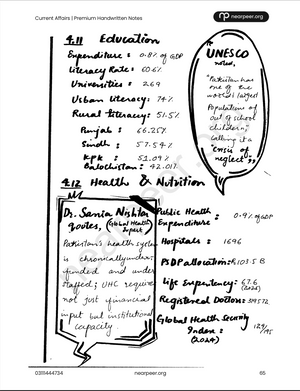 Current Affairs | Premium Handwritten Notes
nearpeer.org
4.11 Education
Expenditure: 0.8% of GDP
Literacy Rate: 60.6%
Universities: 269
Urban literacy: 74%
Rural literacy: 51.5%
Punjab: 66.25%
Sindh: 57.54%
KPK: 51.09%
Balochistan: 42.01%
UNESCO
notes,
"Pakistan has
one of the
world's largest
Populations of
out of school
children,"
calling it a
"crisis of
neglect"
4.12 Health & Nutrition
Dr. Sania Nishtar
quotes, (Global Health Expert)
Pakistan's health system
is chronically under-
funded and under
staffed; UHC requires
not just financial
input but institutional
capacity.
Public Health: 0.9% of GDP
Expenditure
Hospitals: 1696
PSDP allocation: R,103.5 B
Life Expentency: 67.6
(2024)
Registered Doctors: 319572
Global Health Security
Index: 129/195
(2024)
0311444734
nearpeer.org
65